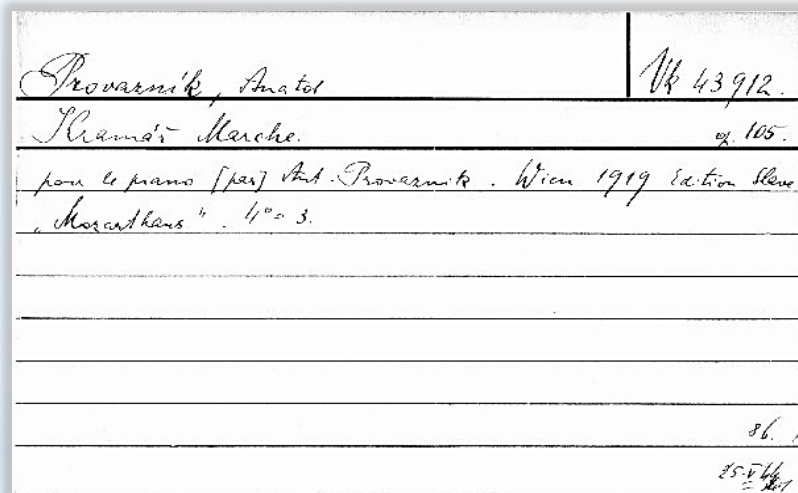 Provazník, Anatol
Vk 43912.
Kramář Marche.
op. 105.
pour le piano [par] Ant. Provazník. Wien 1919 Edition Slave
„Mozarthaus“. 4° = 3.
86.
25.V.44